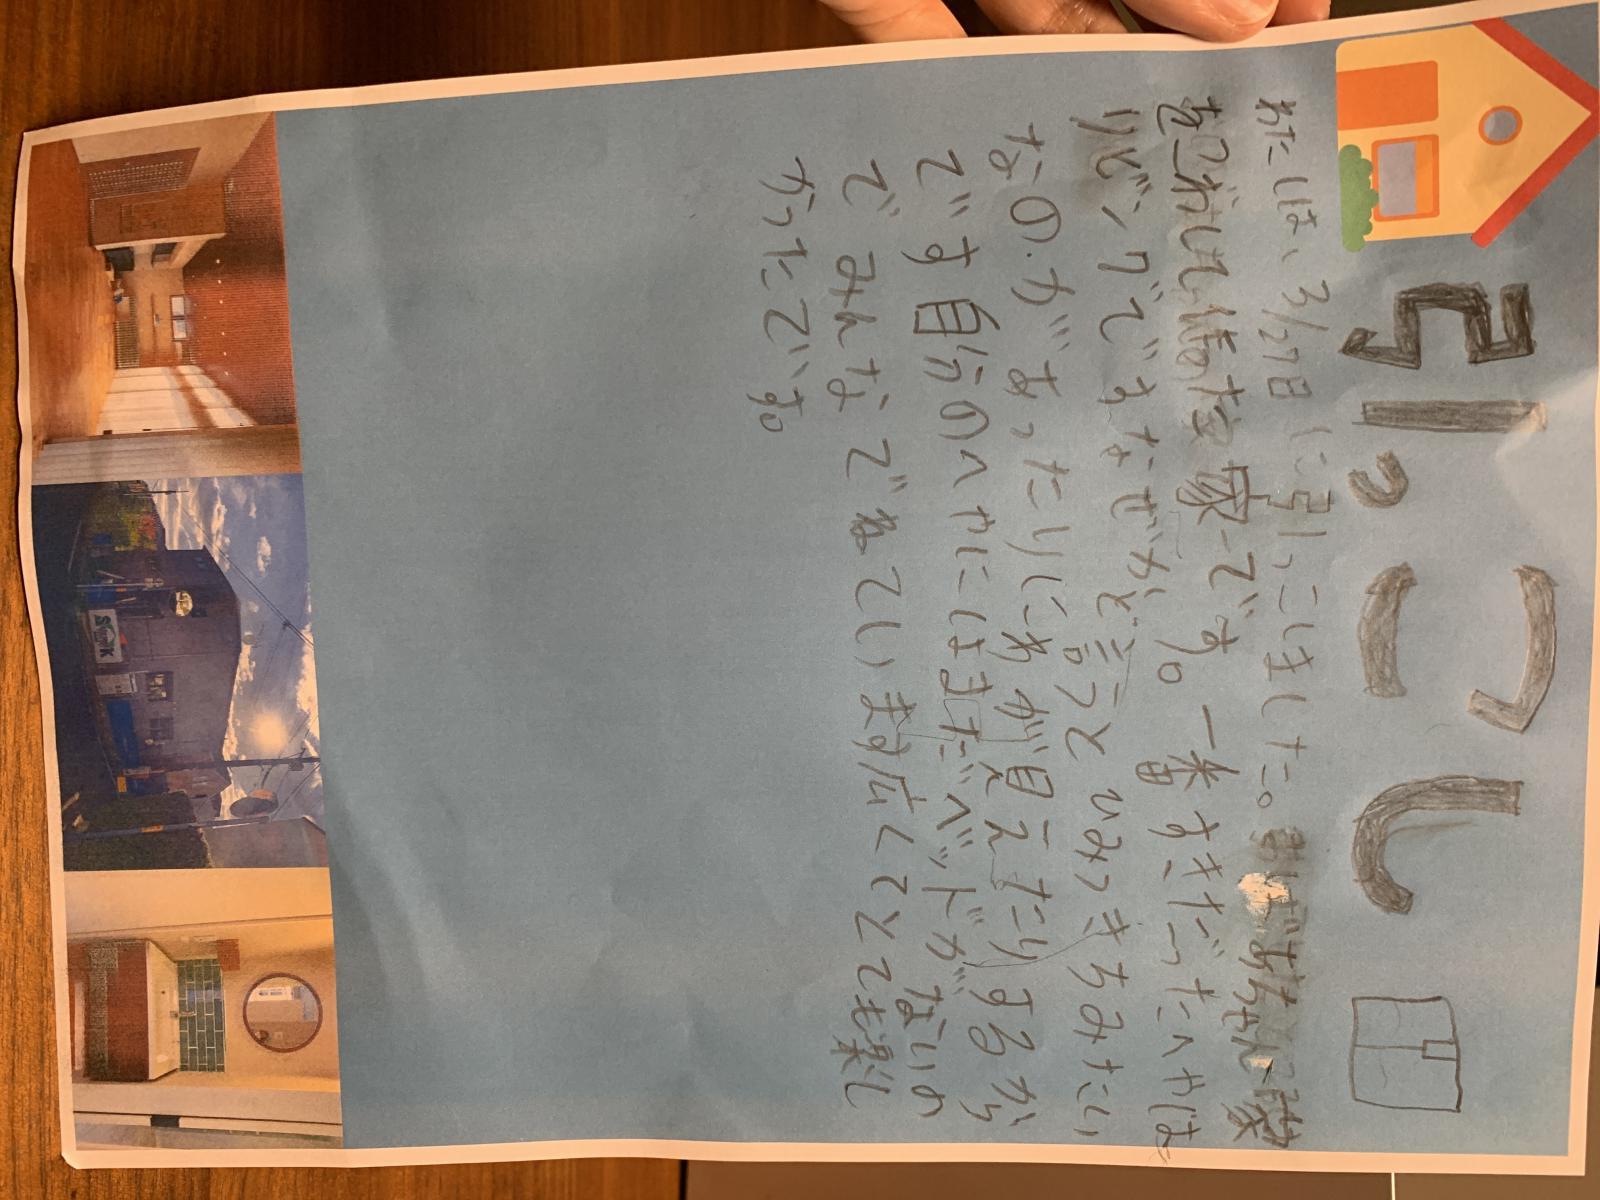 引っこし
わたしは、3/27日に引っこしました。おばあちゃん家
をこわして建た家です。一番すきだったへやは
リビングですなぜかと言うとひみつきちみたい
なのがあったりにわが見えたりするから
です自分のへやにはまだベッドがないの
でみんなでねています広くてとても楽し
かったです。